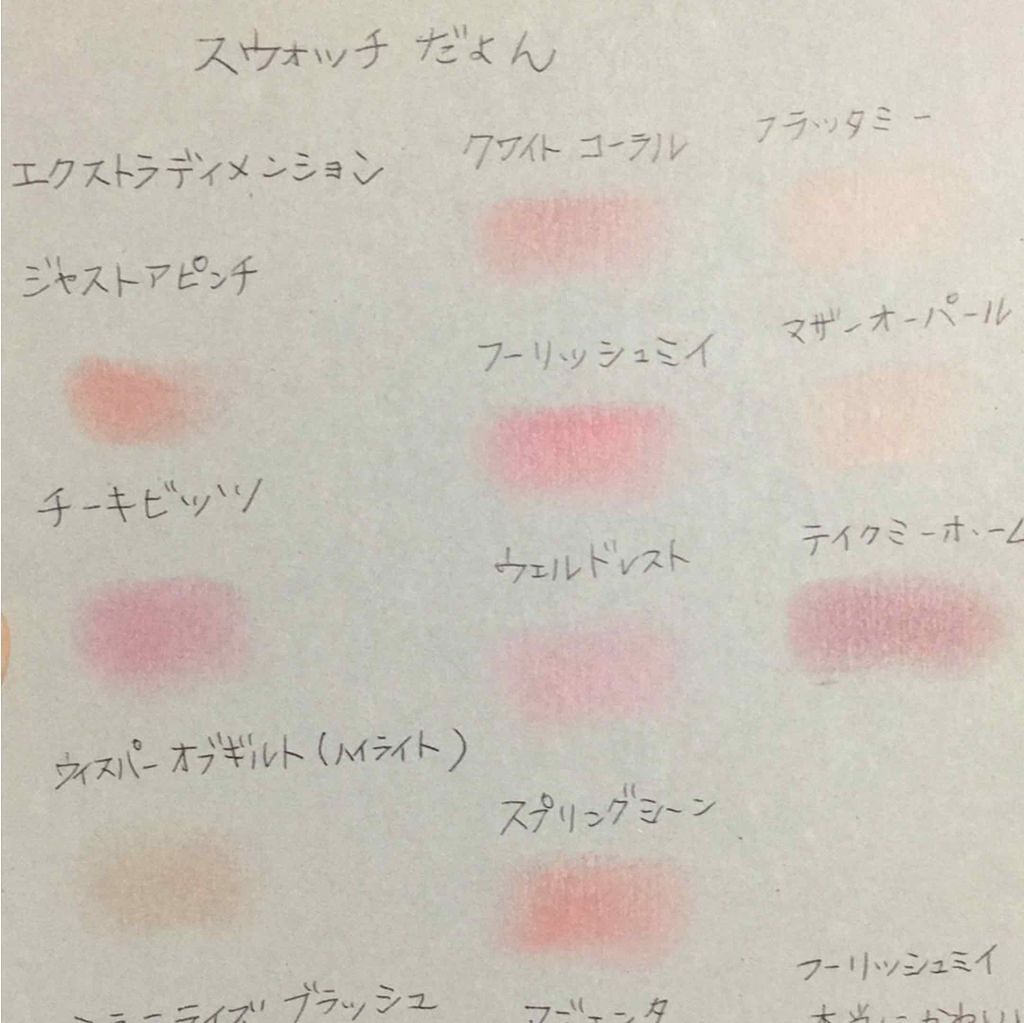 スウォッチ だよん
エクストラディメンション
ジャストアピンチ
チーキビッツ
ウィスパーオブギルト(ハイライト)
ミネラライズ ブラッシュ
クワイト コーラル
フーリッシュミイ
ウェルドレスト
スプリングシーン
フラッタミー
マザーオーパール
テイクミーホーム
フーリッシュミイ
本当にかわいい